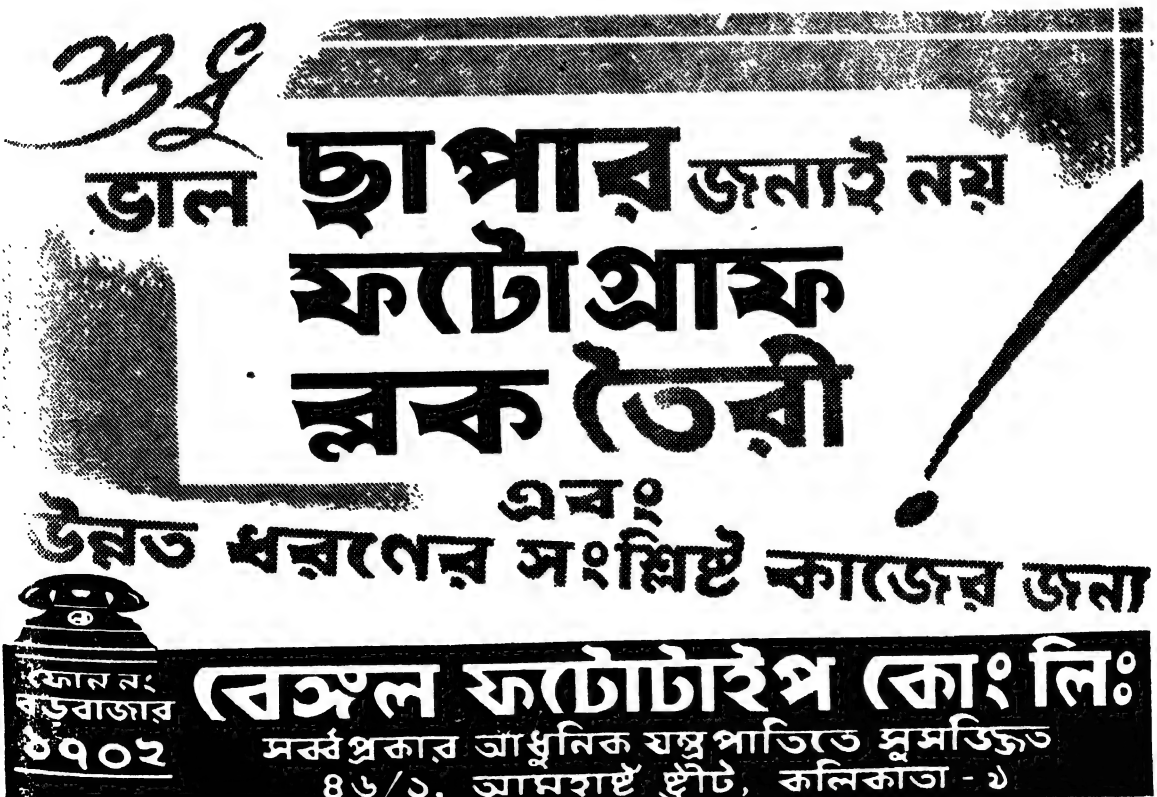 শুধু
ভাল ছাপার জন্যই নয়
ফটোগ্রাফ
ব্লক তৈরী
এবং
উন্নত ধরণের সংশ্লিষ্ট কাজের জন্য
ফোন নং
বড়বাজার
৬৭০২
বেঙ্গল ফটোটাইপ কোং লিঃ
সর্ব্বপ্রকার আধুনিক যন্ত্রপাতিতে সুসজ্জিত
৪৬/১, আমহার্ষ্ট ষ্ট্রীট, কলিকাতা - ৯